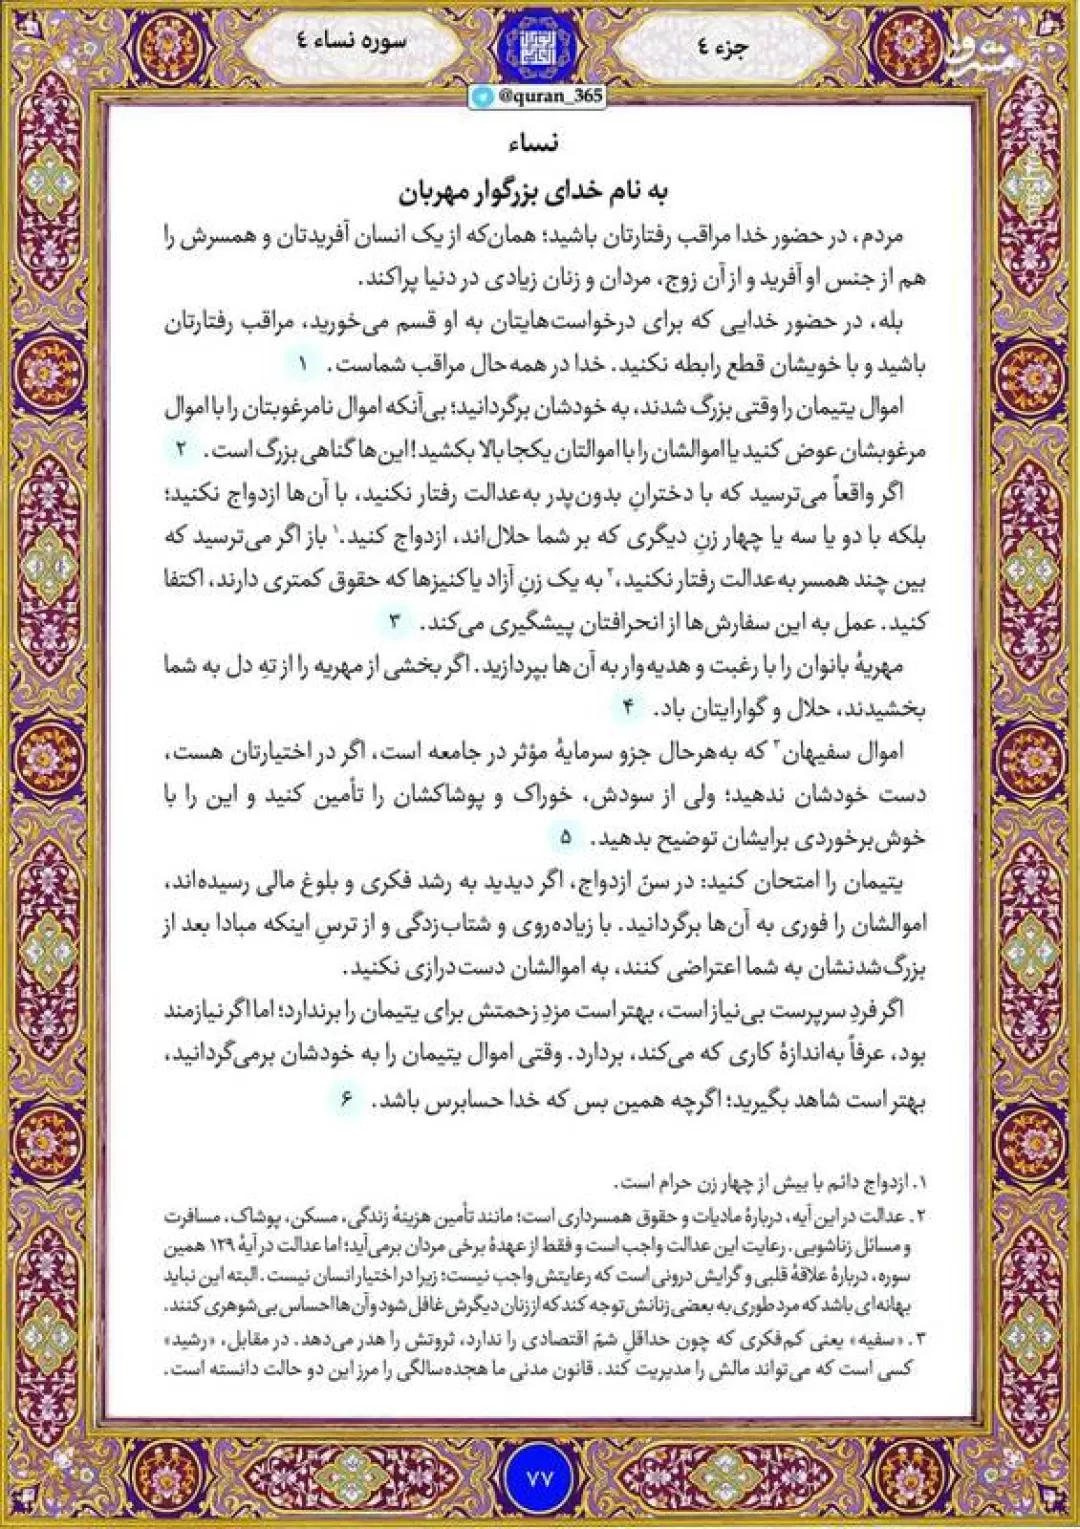 جزء ٤
سوره نساء ٤
مشرق
@quran_365
نساء
به نام خدای بزرگوار مهربان
مردم، در حضور خدا مراقب رفتارتان باشید؛ همان‌که از یک انسان آفریدتان و همسرش را
هم از جنس او آفرید و از آن زوج، مردان و زنان زیادی در دنیا پراکند.
بله، در حضور خدایی که برای درخواست‌هایتان به او قسم می‌خورید، مراقب رفتارتان
باشید و با خویشان قطع رابطه نکنید. خدا در همه‌حال مراقب شماست. ۱
اموال یتیمان را وقتی بزرگ شدند، به خودشان برگردانید؛ بی‌آنکه اموال نامرغوبتان را با اموال
مرغوبشان عوض کنید یا اموالشان را با اموالتان یکجا بالا بکشید! این‌ها گناهی بزرگ است. ۲
اگر واقعاً می‌ترسید که با دخترانِ بدون‌پدر به‌عدالت رفتار نکنید، با آن‌ها ازدواج نکنید؛
بلکه با دو یا سه یا چهار زنِ دیگری که بر شما حلال‌اند، ازدواج کنید.۱ باز اگر می‌ترسید که
بین چند همسر به‌عدالت رفتار نکنید،۲ به یک زنِ آزاد یا کنیزها که حقوق کمتری دارند، اکتفا
کنید. عمل به این سفارش‌ها از انحرافتان پیشگیری می‌کند. ۳
مهریهٔ بانوان را با رغبت و هدیه‌وار به آن‌ها بپردازید. اگر بخشی از مهریه را از تهِ دل به شما
بخشیدند، حلال و گوارایتان باد. ۴
اموال سفیهان۳ که به‌هرحال جزو سرمایهٔ مؤثر در جامعه است، اگر در اختیارتان هست،
دست خودشان ندهید؛ ولی از سودش، خوراک و پوشاکشان را تأمین کنید و این را با
خوش‌برخوردی برایشان توضیح بدهید. ۵
یتیمان را امتحان کنید: در سنّ ازدواج، اگر دیدید به رشد فکری و بلوغ مالی رسیده‌اند،
اموالشان را فوری به آن‌ها برگردانید. با زیاده‌روی و شتاب‌زدگی و از ترسِ اینکه مبادا بعد از
بزرگ‌شدنشان به شما اعتراضی کنند، به اموالشان دست‌درازی نکنید.
اگر فردِ سرپرست بی‌نیاز است، بهتر است مزدِ زحمتش برای یتیمان را برندارد؛ اما اگر نیازمند
بود، عرفاً به‌اندازهٔ کاری که می‌کند، بردارد. وقتی اموال یتیمان را به خودشان برمی‌گردانید،
بهتر است شاهد بگیرید؛ اگرچه همین بس که خدا حسابرس باشد. ۶
۱. ازدواج دائم با بیش از چهار زن حرام است.
۲. عدالت در این آیه، دربارهٔ مادیات و حقوق همسرداری است؛ مانند تأمین هزینهٔ زندگی، مسکن، پوشاک، مسافرت
و مسائل زناشویی. رعایت این عدالت واجب است و فقط از عهدهٔ برخی مردان برمی‌آید؛ اما عدالت در آیهٔ ۱۲۹ همین
سوره، دربارهٔ علاقهٔ قلبی و گرایش درونی است که رعایتش واجب نیست؛ زیرا در اختیار انسان نیست. البته این نباید
بهانه‌ای باشد که مرد طوری به بعضی زنانش توجه کند که از زنان دیگرش غافل شود و آن‌ها احساس بی‌شوهری کنند.
۳. «سفیه» یعنی کم‌فکری که چون حداقلِ شمّ اقتصادی را ندارد، ثروتش را هدر می‌دهد. در مقابل، «رشید»
کسی است که می‌تواند مالش را مدیریت کند. قانون مدنی ما هجده‌سالگی را مرز این دو حالت دانسته است.
۷۷